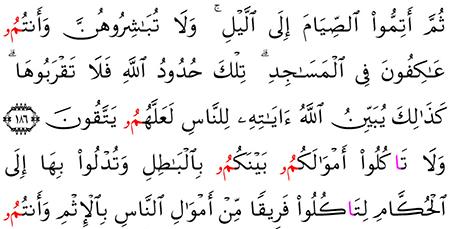 ثُمَّ أَتِمُّوا۟ ٱلصِّيَامَ إِلَى ٱلَّيْلِ ۚ وَلَا تُبَـٰشِرُوهُنَّ وَأَنتُمُۥ
عَـٰكِفُونَ فِى ٱلْمَسَـٰجِدِ ۗ تِلْكَ حُدُودُ ٱللَّهِ فَلَا تَقْرَبُوهَا ۗ
كَذَٰلِكَ يُبَيِّنُ ٱللَّهُ ءَايَـٰتِهِۦ لِلنَّاسِ لَعَلَّهُمُۥ يَتَّقُونَ ١٨٦
وَلَا تَاكُلُوٓا۟ أَمْوَٰلَكُمُۥ بَيْنَكُمُۥ بِٱلْبَـٰطِلِ وَتُدْلُوا۟ بِهَآ إِلَى
ٱلْحُكَّامِ لِتَاكُلُوا۟ فَرِيقًا مِّنْ أَمْوَٰلِ ٱلنَّاسِ بِٱلْإِثْمِ وَأَنتُمُۥ